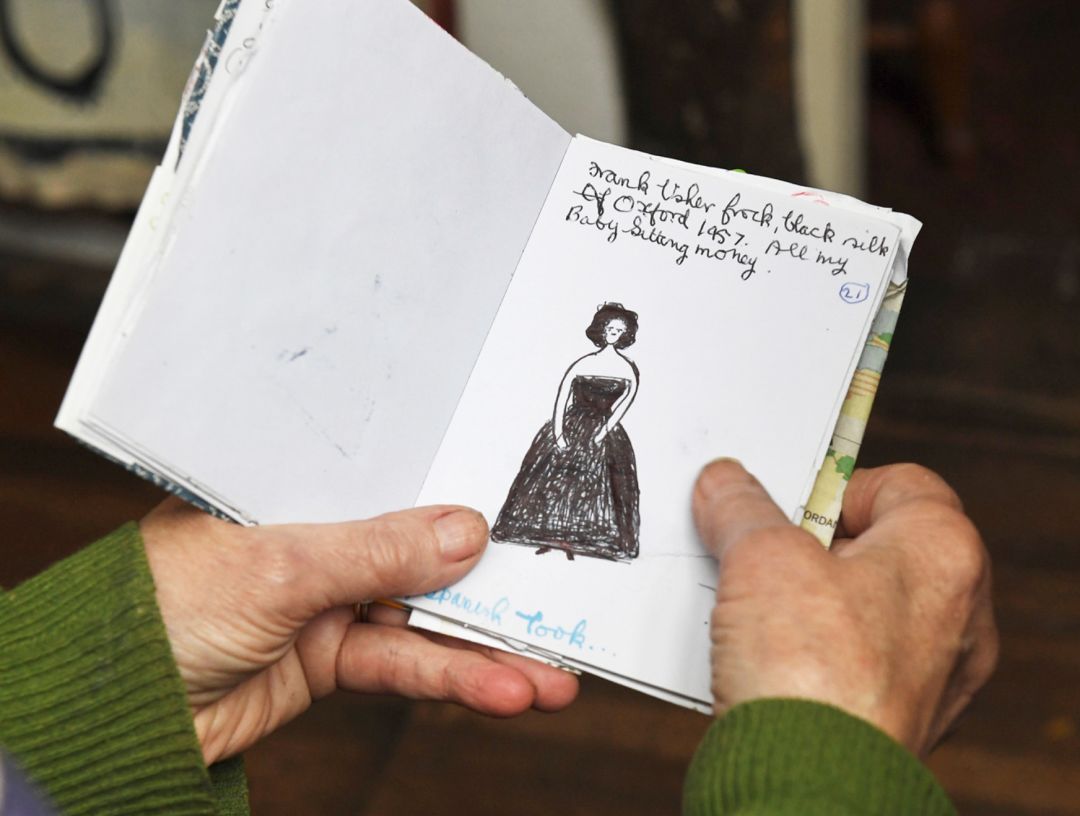 Frank Usher frock, black silk
Of Oxford 1957. All my
Baby Sitting money.
21
Spanish Look...
ORDA